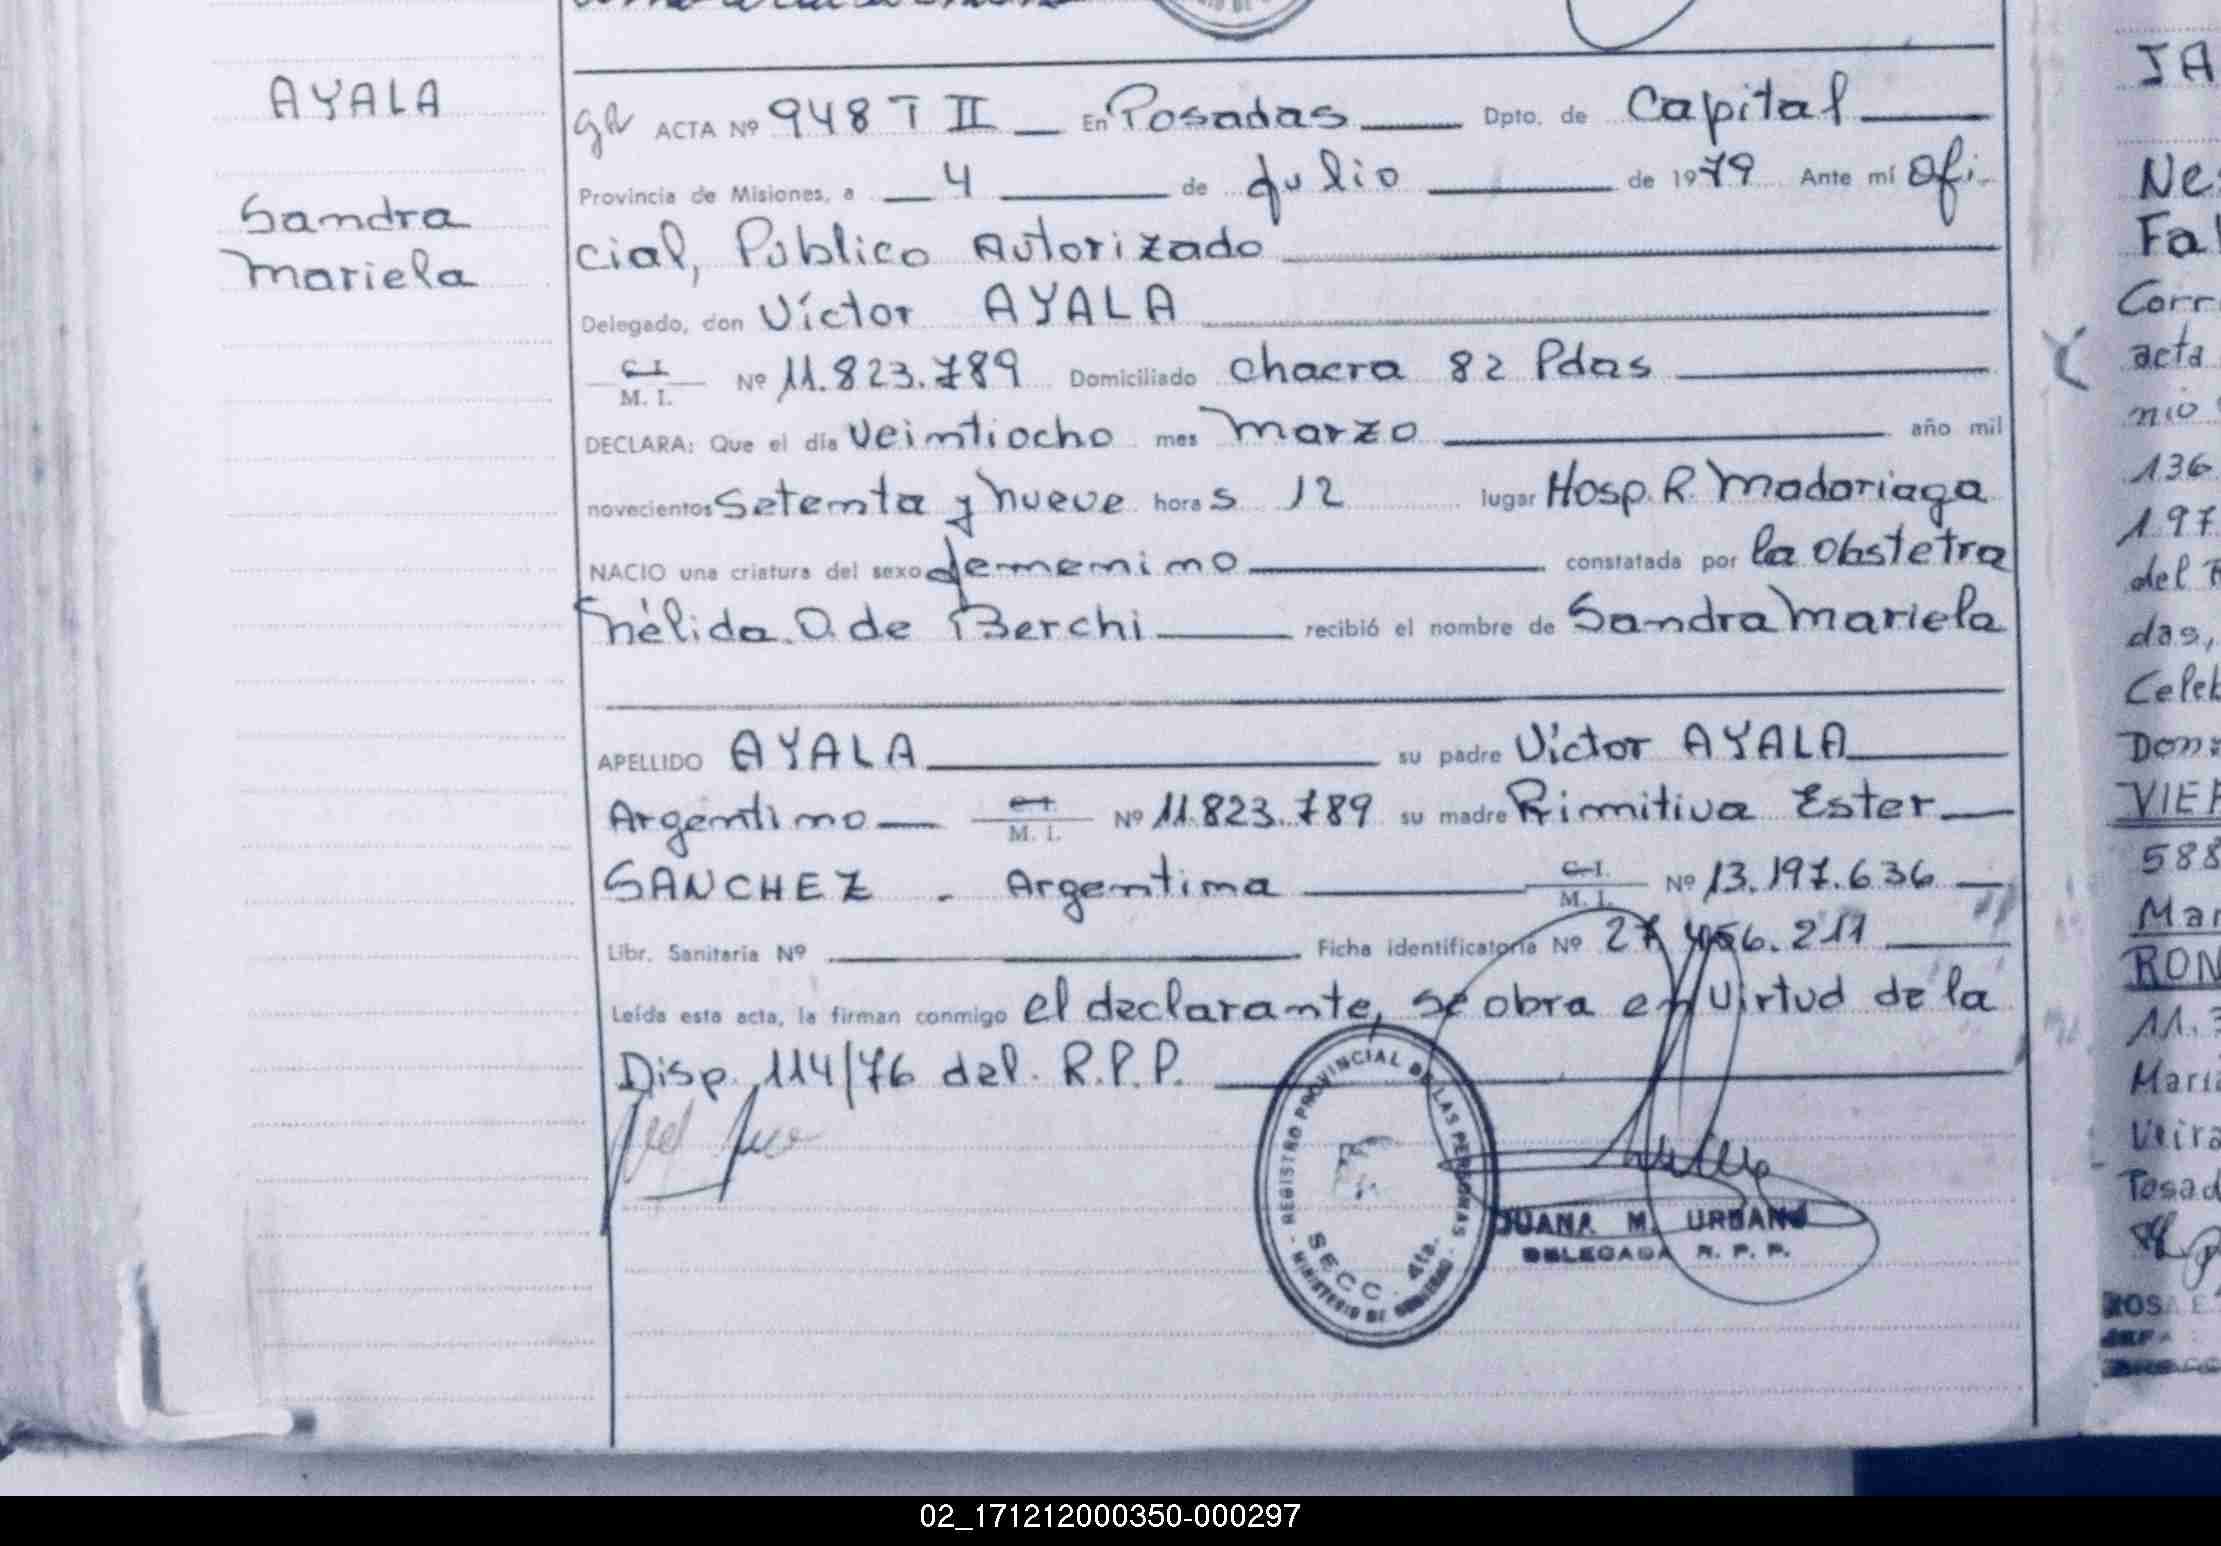 AYALA
Sandra
Mariela
ACTA Nº 948 T II En Posadas Dpto. de Capital
Provincia de Misiones, a 4 de Julio de 1979 Ante mí Ofi-
cial, Público Autorizado
Delegado, don Víctor AYALA
C.I.
M. I. Nº 11.823.789 Domiciliado chacra 82 Pdas
DECLARA: Que el día veintiocho mes marzo año mil
novecientos setenta y nueve horas 12 lugar Hosp. R. Madariaga
NACIO una criatura del sexo femenino constatada por la obstetra
Nélida O. de Berchi recibió el nombre de Sandra Mariela
APELLIDO AYALA su padre Víctor AYALA
Argentino C.I.
M. I. Nº 11.823.789 su madre Primitiva Ester
SANCHEZ - Argentina C.I.
M. I. Nº 13.197.636
Libr. Sanitaria Nº Ficha identificatoria Nº 27.456.211
Leída esta acta, la firman conmigo el declarante, se obra en virtud de la
Disp. 114/76 del R.P.P.
REGISTRO PROVINCIAL DE LAS PERSONAS
SECC. 4ta.
- MINISTERIO DE GOBIERNO -
JUANA M. URBANO
DELEGADA R. P. P.
JA
Ne
Fal
Corr
acta
nio
136
197
del R
das,
Celeb
Don
VIER
588
Mar
RON
11.3
María
Veira
Posad
ROSA E.
JEFA
02_171212000350-000297